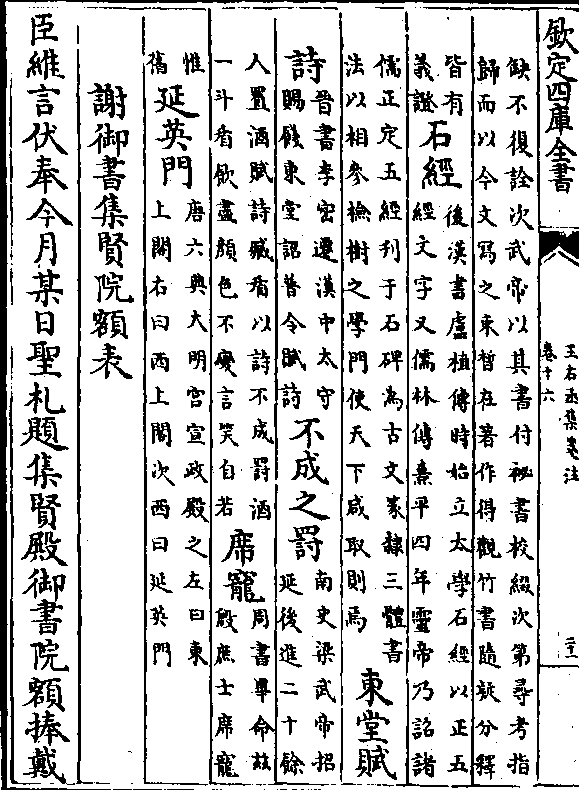 欽定四庫全書
王右丞集箋注
卷十六
缺不復詮次武帝以其書付祕書校綴次第尋考指
歸而以今文寫之束晳在著作得觀竹書隨疑分釋
皆有
義證
石經
後漢書盧植傳時始立太學石經以正五
經文字又儒林傳熹平四年靈帝乃詔諸
儒正定五經刊于石碑為古文篆隸三體書
法以相參檢樹之學門使天下咸取則焉
東堂賦
詩
晉書李密遷漢中太守
賜餞東堂詔普令賦詩
不成之罸
南史梁武帝招
延後進二十餘
人置酒賦詩臧盾以詩不成罰酒
一斗盾飲盡顔色不變言笑自若
席寵
周書畢命兹
殷庶士席寵
惟
舊
延英門
唐六典大明宮宣政殿之左曰東
上閤右曰西上閤次西曰延英門
謝御書集賢院額表
臣維言伏奉今月某日聖札題集賢殿御書院額捧戴